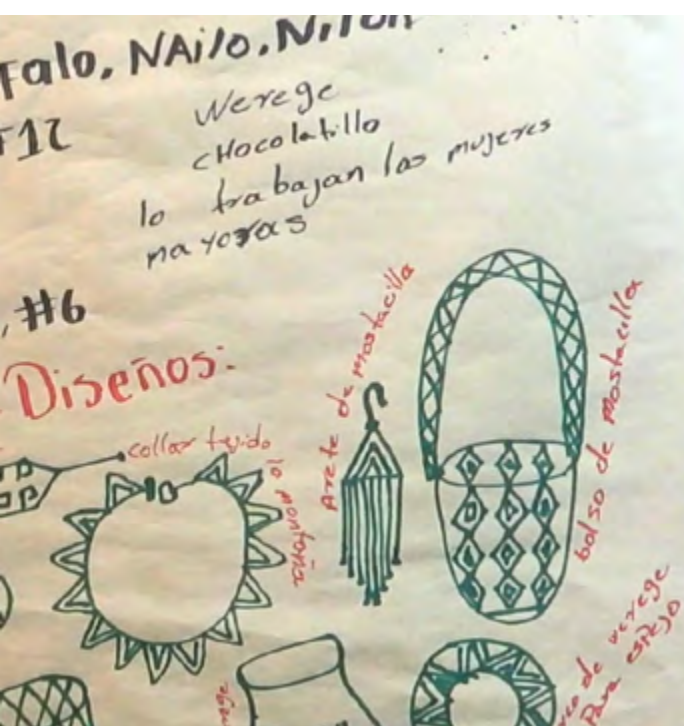 Falo, NAilo, Nilon
Werege
cHocolatillo
lo trabajan las mujeres
mayoras
, #6
Diseños:
collar tejido
lo montaña
Arete de mostacilla
bolso de mostacilla
de werege
Para espejo